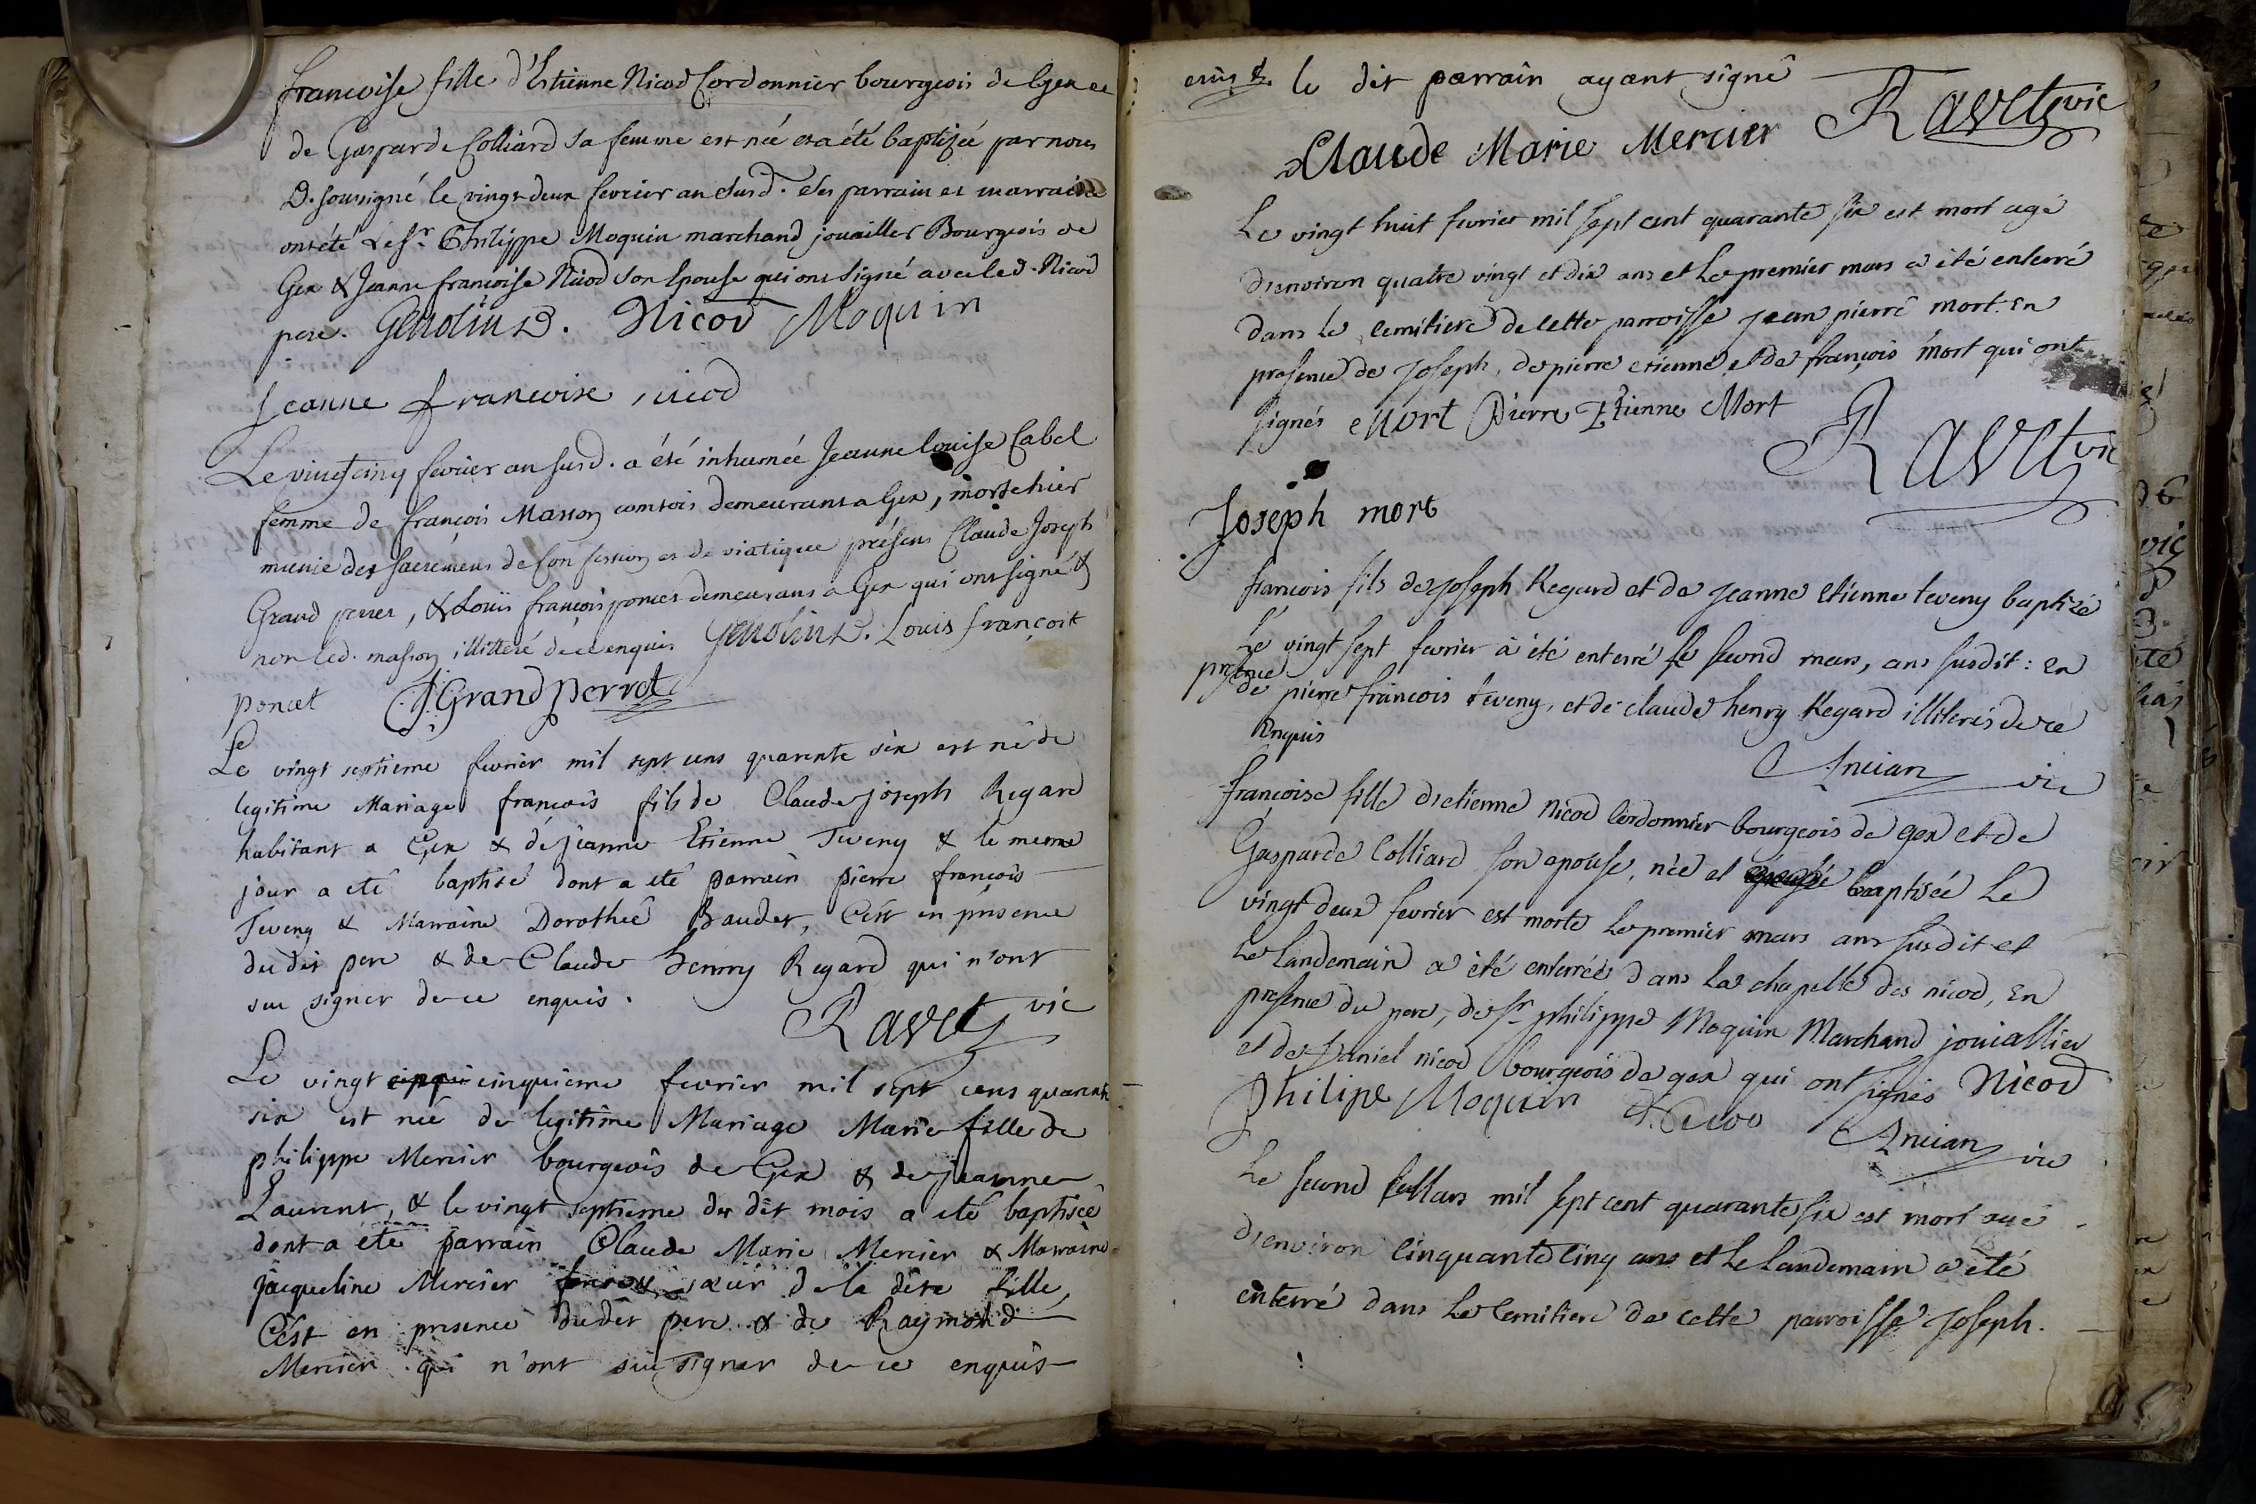 francoise fille d'Estienne Nicod Cordonnier bourgeois de Gex et
de Gasparde Colliard sa femme est née et a été baptizée par nous
D. soussigné le vingt deux fevrier an susd. ses parrain et marraine
ont été Le Sr. Philippe Moquin marchand jouailler Bourgeois de
Gex & Jeanne francoise Nicod son Epouse qui ont signé avec led. Nicod
pere. Nicod Moquin
jeanne francoise nicod
Le vingt cinq fevrier an susd. a été inhumée Jeanne louise Cabel
femme de françois Masson comtois demeurant a Gex, morte hier
munie des sacremens de Confession et de viatique présens Claude Joseph
Grand perret, & Louis françois poncet demeurans a Gex qui ont signé &
non led. masson illitteré de ce enquis Louis françoit
poncet Grand perrot
Le vingt septieme fevrier mil sept cens quarente six est né de
legitime Mariage francois fils de Claude joseph Regard
habitant a Gex & de jeanne Etienne Teveny & le mesme
jour a eté baptisé dont a eté parrain pierre francois
Teveny & Marraine Dorotheé Baudet, C'est en presence
du dit pere & de Claude henry Regard qui n'ont
sue signer de ce enquis.
Ravet vic
Le vingt cinquieme fevrier mil sept cens quarente
six est née de legitime Mariage Marie fille de
philippe Mercier bourgeois de Gex & de jeanne
Laurent, & le vingt septieme du dit mois a eté baptiseé
dont a eté parrain Claude Marie Mercier & Marraine
jacqueline Mercier sœur de la dite fille,
C'est en presence du dit pere & de Raymond
Mercier qui n'ont sue signer de ce enquis
le dit parrain ayant signé
Ravet vic
Claude Marie Mercier
Le vingt huit fevrier mil sept cent quarante six est mort agé
d'environ quatre vingt et dix ans et Le premier mars a été enterré
dans le cemitiere de cette parroisse jean pierre mort. En
presence de joseph, de pierre etienne, et de françois mort qui ont
signés Mort Pierre Etienne Mort
Ravet vic
Joseph mort
françois fils de joseph Regard et de jeanne etienne teveny baptizé
le vingt sept fevrier à été enterré le second mars, ans susdit: En
presence
de pierre francois teveny, et de claude henry Regard illiterés de ce
Enquis
Ancian vic
françoise fille d'etienne Nicod Cordonnier bourgeois de gex et de
Gasparde Colliard son epouse, née et baptisée Le
vingt deux fevrier est morte Le premier mars ans susdit et
Le landemain a été enterrée dans La chapelle des nicod, En
presence du pere, de Sr philippe Moquin Marchand jouiallier
et de Daniel nicod bourgeois de gex qui ont signés Nicod
Philipe Moquin
Ancian vic
Le second mars mil sept cent quarante six est mort agé
d'environ Cinquante cinq ans et Le landemain a été
enterré dans Le Cemitiere de cette parroisse Joseph.